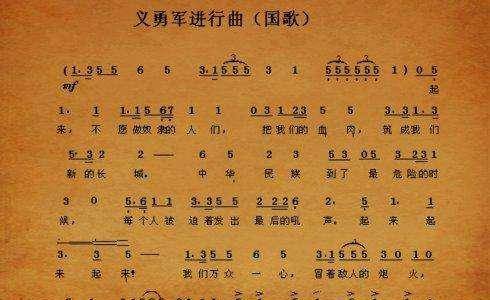 义勇军进行曲（国歌）
3 3
(1. 3 5 5 6 5 3. 1 5 5 5 3 1 5 5 5 5 5 5 1) 0 5
mf 起
1. 1 1. 1 5 6 7 1 1 0 3 1 2 3 5 5 3. 3 1. 3
来， 不 愿做奴隶的 人 们， 把我们的血 肉， 筑成我们
5. 3 2 2 — 6 5 2 3 5 3 0 5 3 2 3 1
新的长 城。— 中 华 民 族 到 了 最 危险的时
3 0 5 6 1 1 3. 3 5 5 2 2 2 6 2. 5
候， 每个人被 迫着发出 最后的吼 声。起来起
3. 3 5 1. 3 5 5 6 5 3. 1 5 5 5 3 0 1 0
来 起来! 我们万众 一心，冒着敌人的 炮 火，